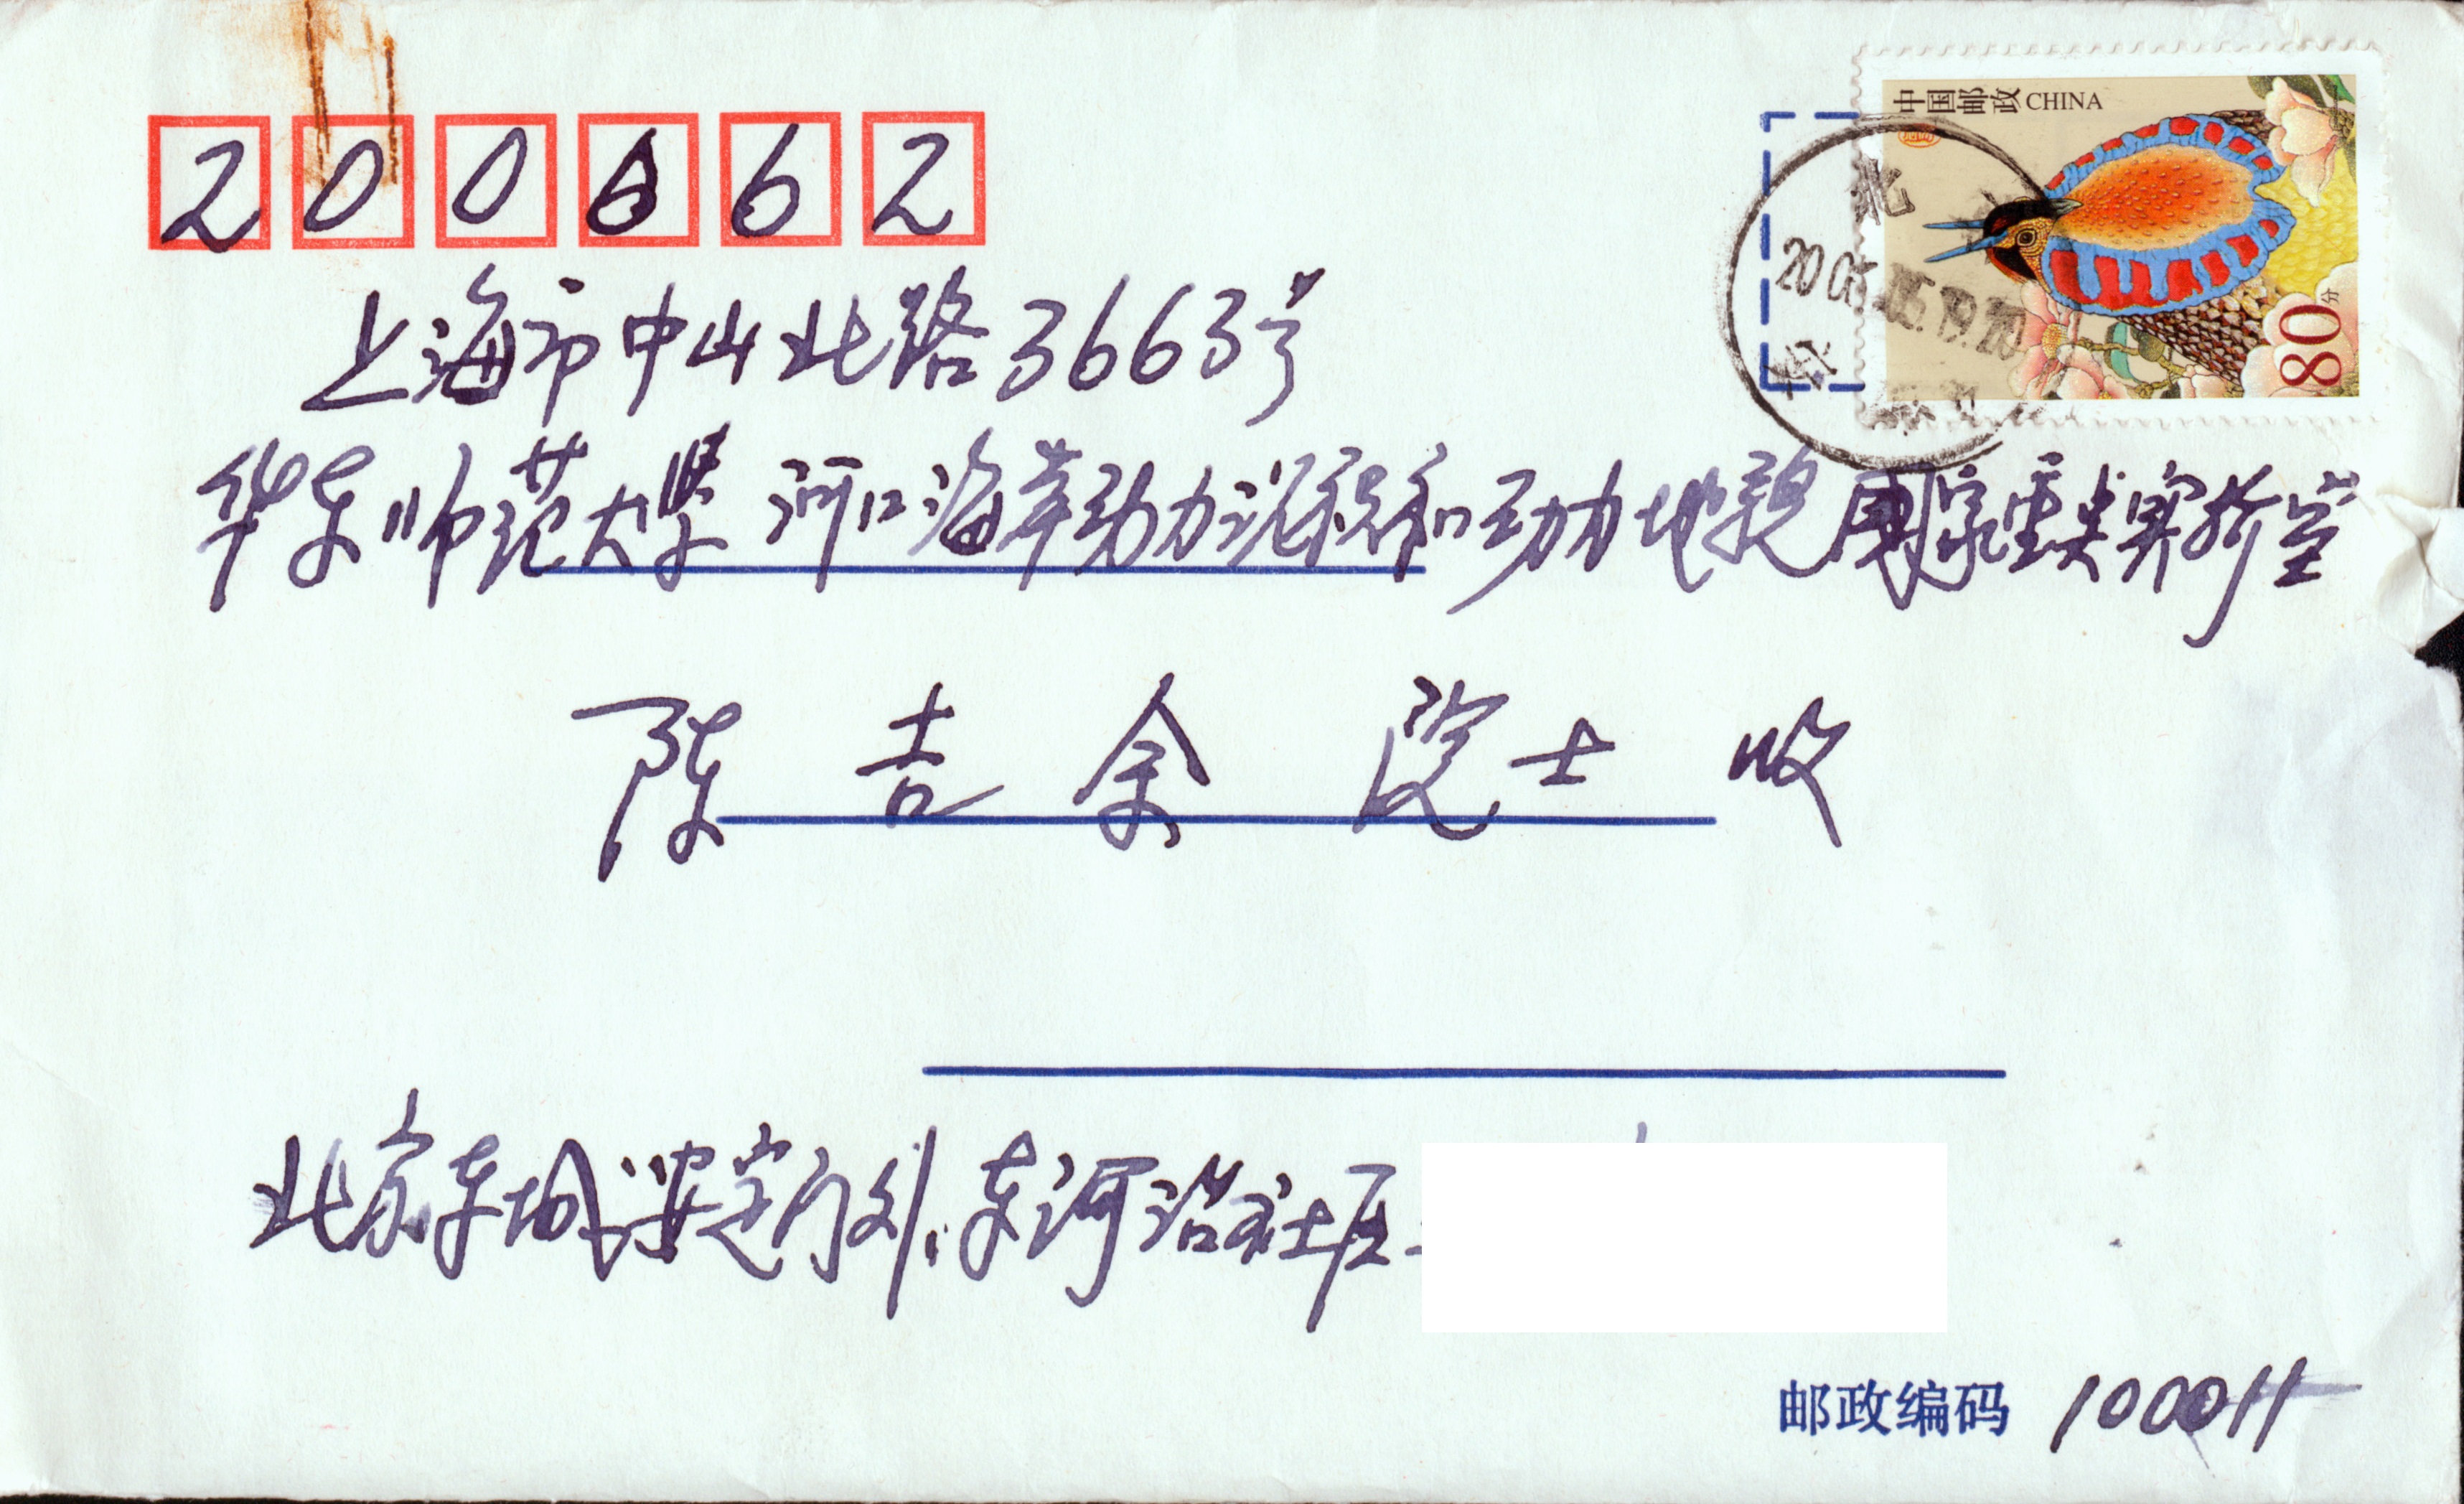 200662
中国邮政 CHINA
80分
北京
上海市中山北路3663号
华东师范大学 河口海岸动力沉积和动力地貌国家重点实验室
陈吉余 院士 收
北京东城安定门外东河沿社区
邮政编码 100011